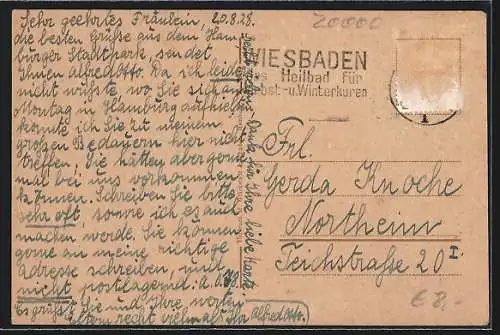 Sehr geehrtes Fräulein, 20.8.28.
die besten Grüße aus dem Ham-
burger Stadtpark, sendet
Ihnen Alfred Otto. Da ich leider
nicht wüßte, wo Sie sich am
Montag in Hamburg aufhielten
konnte ich Sie zu meinem
großen Bedauern hier nicht
treffen. Sie hätten aber gerne
mal bei uns vorkommen
können. Schreiben Sie bitte
sehr oft, so wie ich es auch
machen werde. Sie können
gerne an meine richtige
Adresse schreiben, und
nicht postlagernd: A.O.
Es grüßt Sie und Ihre werten
Eltern recht vielmals Ihr Alfred Otto.
Danke für Ihre liebe Karte
20000
WIESBADEN
Heilbad für
Herbst-u.Winterkuren
Frl.
Gerda Knoche
Northeim
Teichstraße 20 I.
€ 8,-